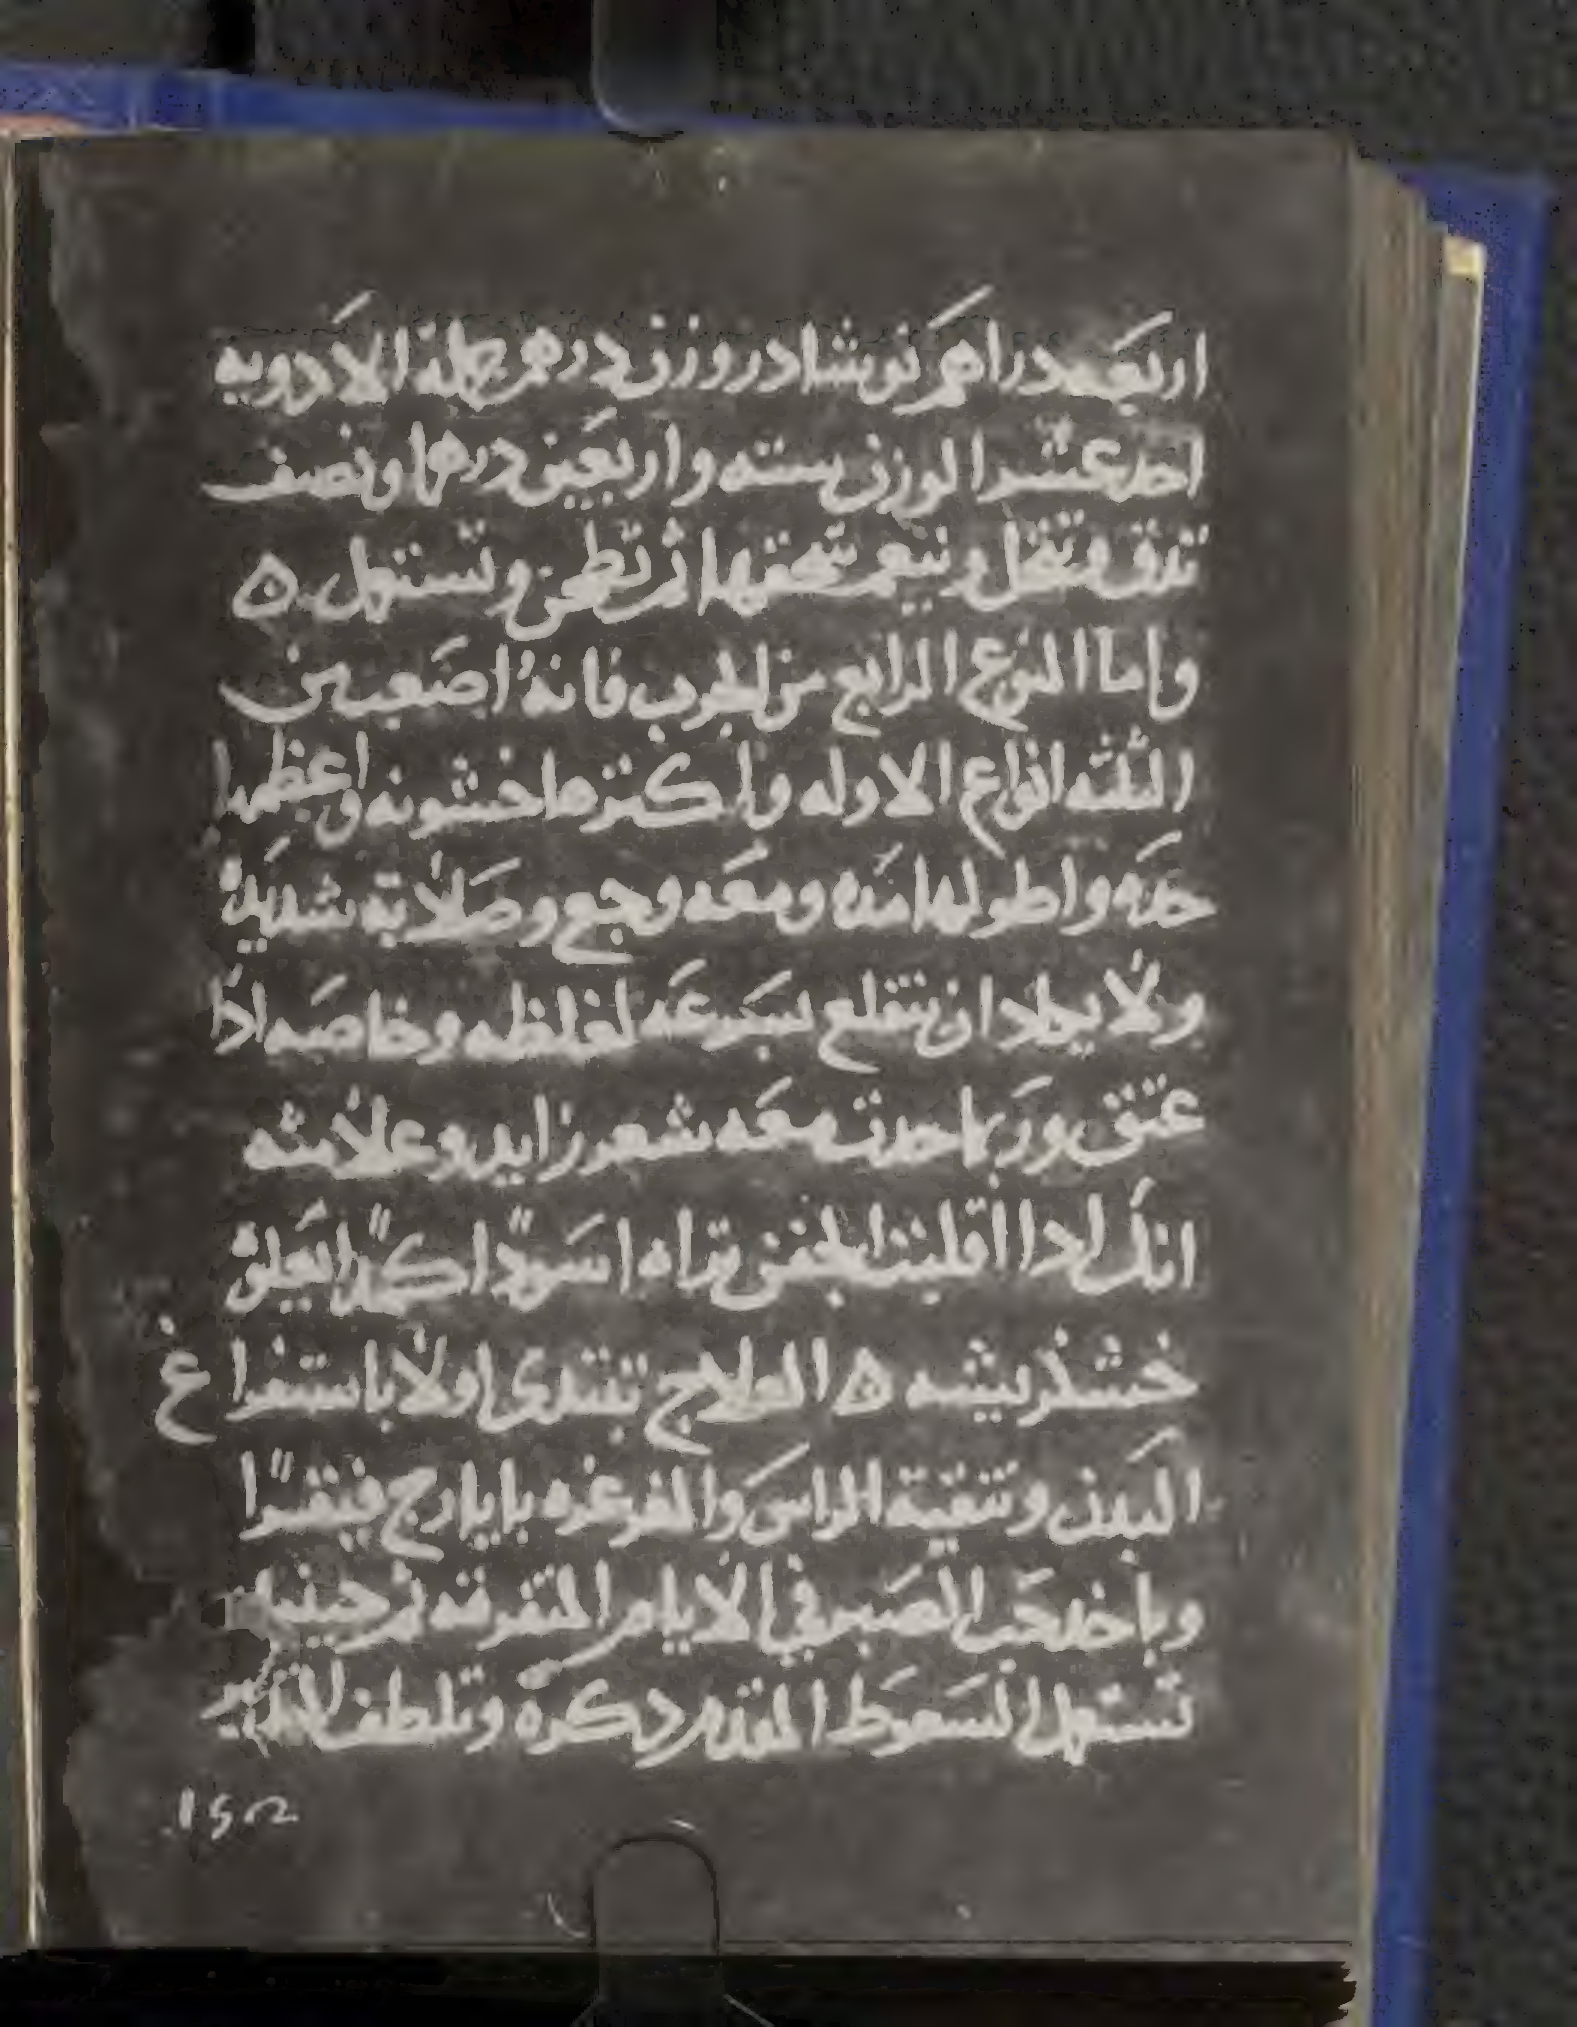 اربعه دراهم نوشادر وزن درهم جملة الادويه
احد عشر الوزن سته واربعين درهما ونصف
تدق وتنخل وينعم سحقها ثم تطحن وتستعمل ه
واما النوع الرابع من الجرب فانه اصعب من
الثلثه انواع الاوله واكثرها خشونه واعظمها
حده واطولها مده ومعه وجع وصلابة شديدة
ولا يكاد ان ينقلع بسرعه لغلظه وخاصه اذا
عتق وربما حدث معه شعر زايد وعلامته
انك اذا اقلبت الجفن تراه اسودا كمدا يعلوه
خشكريشه ه العلاج تبتدى اولا باستفراغ
البدن وتنقية الراس والغرغره بايارج فيقرا
وباخذ حب الصبر في الايام المتفرقه ثم حينيذ
تستعمل السعوط المقدم ذكره وتلطف التدبير